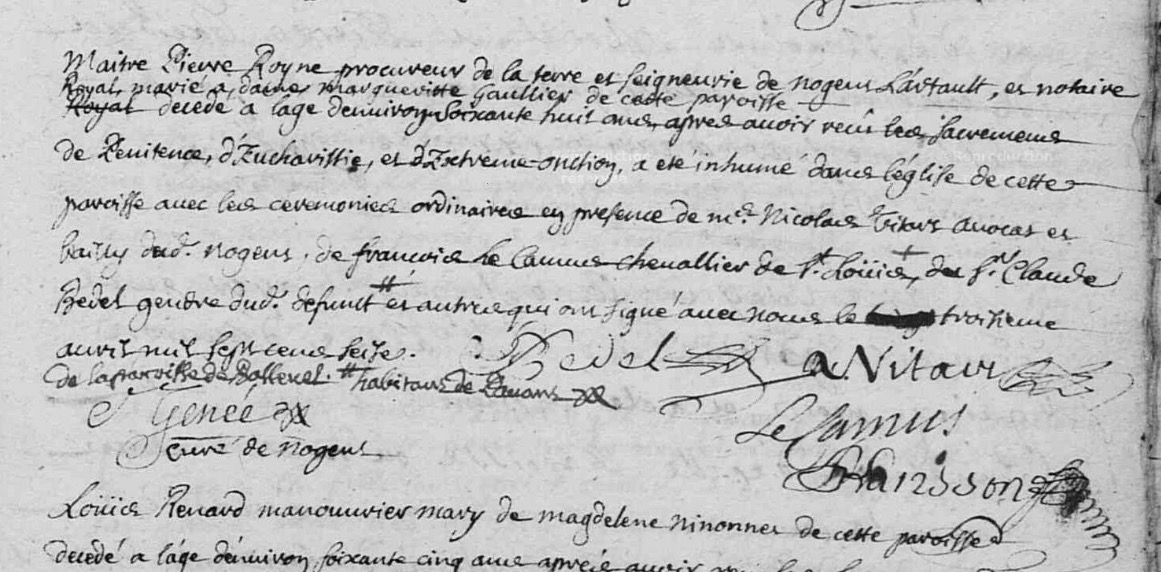 Maitre Pierre Royne procureur de la terre et seigneurie de nogent Lartault, et notaire
Royal, marié a dame margueritte Gaullier de cette paroisse
Royal decedé a lage denuiron soixante huit ans, apres auoir receu les sacremens
de Penitence, d'Eucharistie, et d'Extreme onction, a eté inhumé dans l'église de cette
paroisse auec les ceremonies ordinaires en presence de mre Nicolas Vitart auocat et
bailly dud. nogent, de francois le Camus cheuallier de St. Loüis, + de Sr. Claude
Bedel gendre dud. defunt # et autres qui ont signé auec nous le troisieme
auril mil sept cens seise.
Bedel
a Vitart
de la parroisse de # habitans de
Le Camus
Genée
curé de nogent
Loüis Renard manouurier mary de magdelene ninonnet de cette paroisse
decedé a l'áge d'énuiron soixante cinq ans aprés auoir